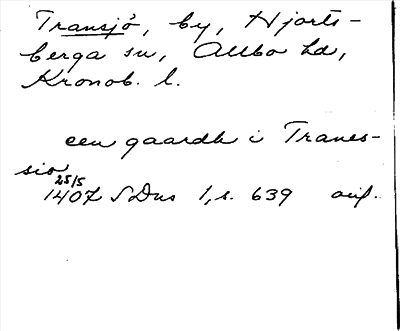 Transjö, by, Hjorts-
berga sn, Allbo hd,
Kronob. l.
een gaardh i Tranes-
sio
25/5
1407 SDns 1, s. 639 avskr.